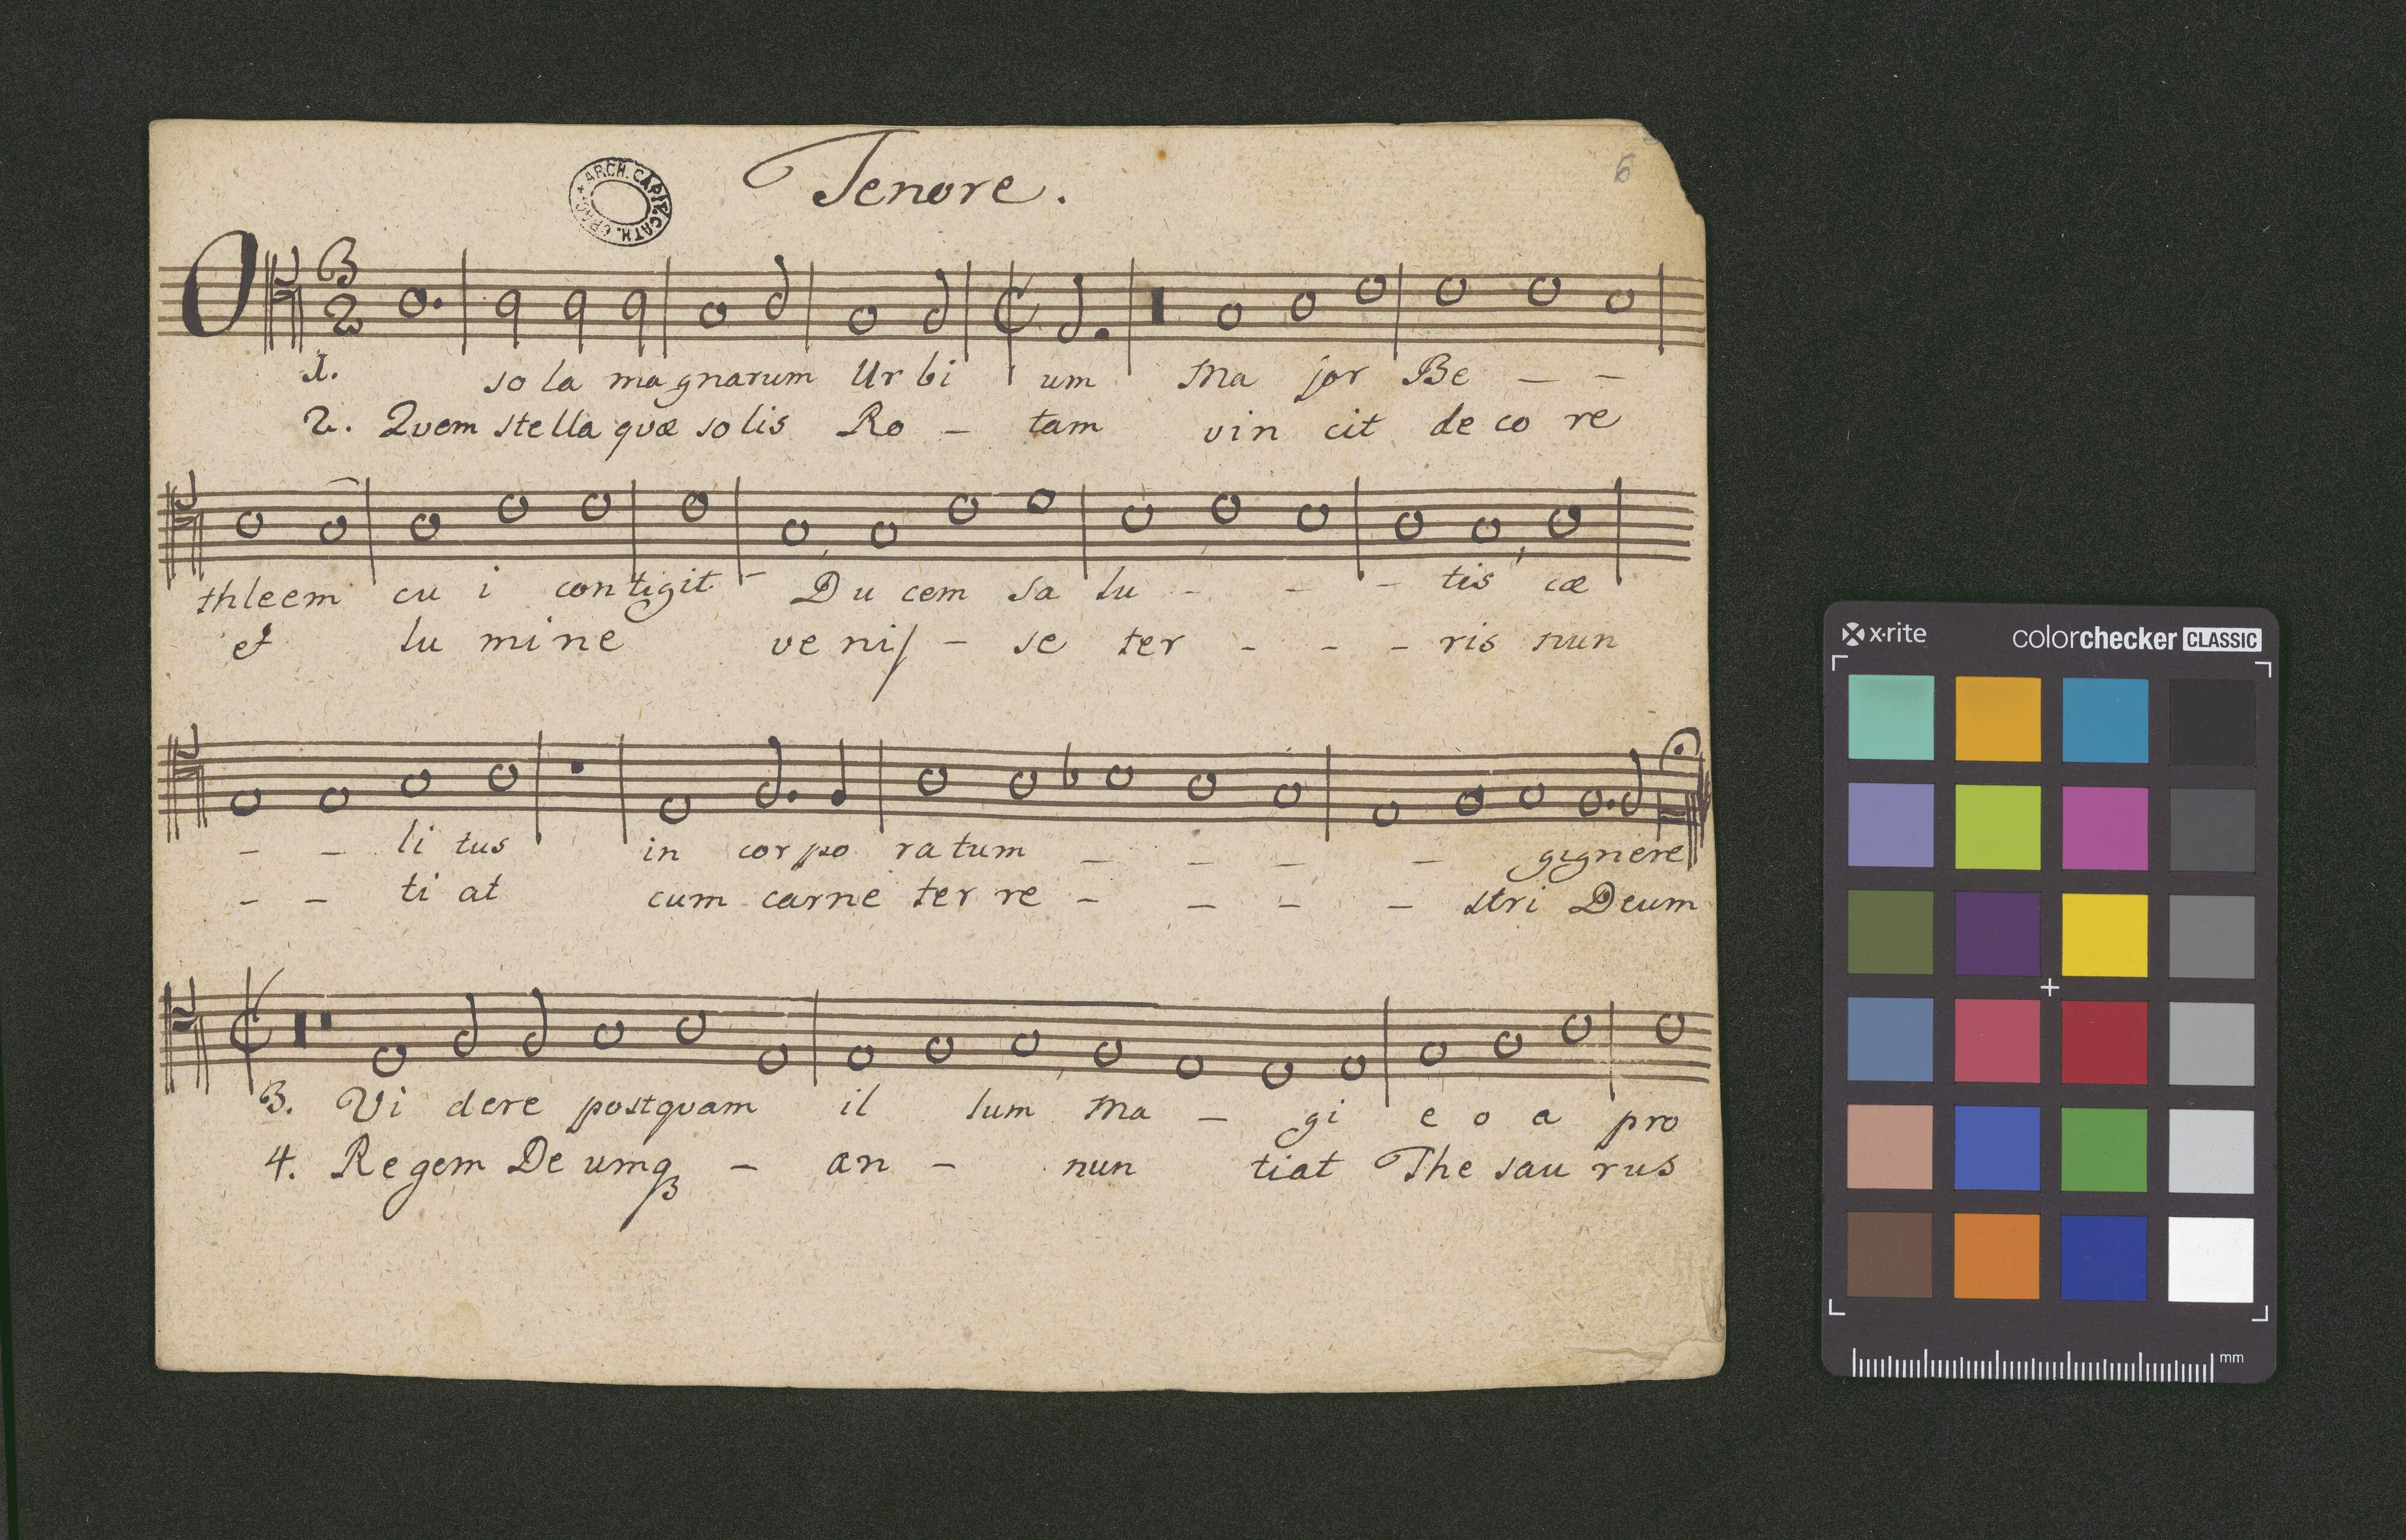 Tenore.
6
ARCH. CAPIT. CATH. CRAC.
O
3
2
1. so la ma gnarum Ur bi um Ma jor Be - -
2. Quem stella quæ solis Ro - tam vin cit de co re
thleem cu i contigit - Du cem sa lu - - - tis cæ
et lu mine ve niſ - se ter - - - ris nun
- - li tus in cor po ra tum - - - - gignere
- - ti at cum carne ter re - - - - stri Deum
3. Vi dere postquam il lum Ma - gi e o a pro
4. Re gem De umq3 - an - nun tiat The sau rus
x·rite colorchecker CLASSIC
mm